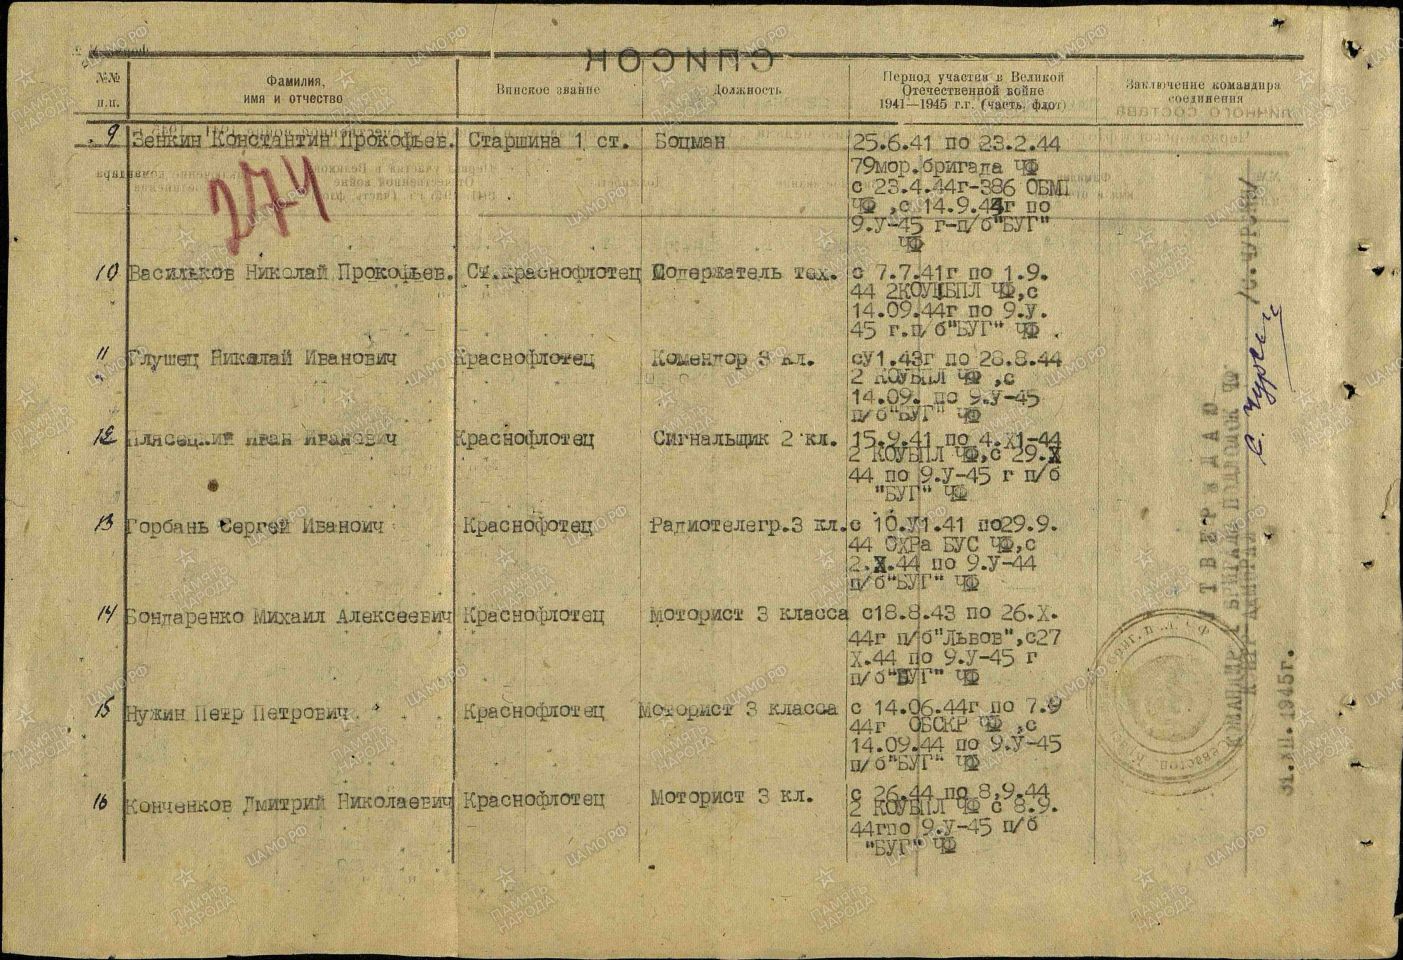 №№ п.п. Фамилия, имя и отчество Винское звание Должность Период участия в Великой Отечественной войне 1941—1945 г.г. (часть, флот) Заключение командира соединения
9 Зенкин Константин Прокофьев. Старшина 1 ст. Боцман 25.6.41 по 23.2.44
79мор.бригада ЧФ
с 23.4.44г-386 ОБМП
ЧФ ,с 14.9.44г по
9.У-45 г-п/б"БУГ"
ЧФ
274
10 Васильков Николай Прокофьев. Ст.краснофлотец Содержатель тех. с 7.7.41г по 1.9.
44 2КОУБПЛ ЧФ,с
14.09.44г по 9.У.
45 г.п/б"БУГ" ЧФ
11 Глушец Николай Иванович Краснофлотец Комендор 3 кл. сУ1.43г по 28.8.44
2 КОУБПЛ ЧФ ,с
14.09. по 9.У-45
п/б"БУГ" ЧФ
12 Плясецкий Иван Иванович Краснофлотец Сигнальщик 2 кл. 15.9.41 по 4.Х1-44
2 КОУБПЛ ЧФ,с 29.Х
44 по 9.У-45 г п/б
"БУГ" ЧФ
13 Горбань Сергей Иваноич Краснофотец Радиотелегр.3 кл. с 10.У1.41 по29.9.
44 ОХРа БУС ЧФ,с
2.Х.44 по 9.У-44
п/б"БУГ" ЧФ
14 Бондаренко Михаил Алексеевич Краснофлотец Моторист 3 класса с18.8.43 по 26.Х.
44г п/б"Львов",с27
Х.44 по 9.У-45 г
п/б"БУГ" ЧФ
15 Нужин Петр Петрович Краснофлотец Моторист 3 класса с 14.06.44г по 7.9
44г ОБСКР ЧФ ,с
14.09.44 по 9.У-45
п/б"БУГ" ЧФ
16 Конченков Дмитрий Николаевич Краснофлотец Моторист 3 кл. с 26.44 по 8,9.44
2 КОУБПЛ ЧФ с 8.9.
44гпо 9.У-45 п/б
"БУГ" ЧФ
УТВЕРЖДАЮ
КОМАНДИР БРИГАДЫ ПОДЛОДОК ЧФ
/С.ЧУРСИН/
С. Чурсин
31.ХП.1945г.
СПИСОК
ПАМЯТЬ НАРОДА
ЦАМО.РФ